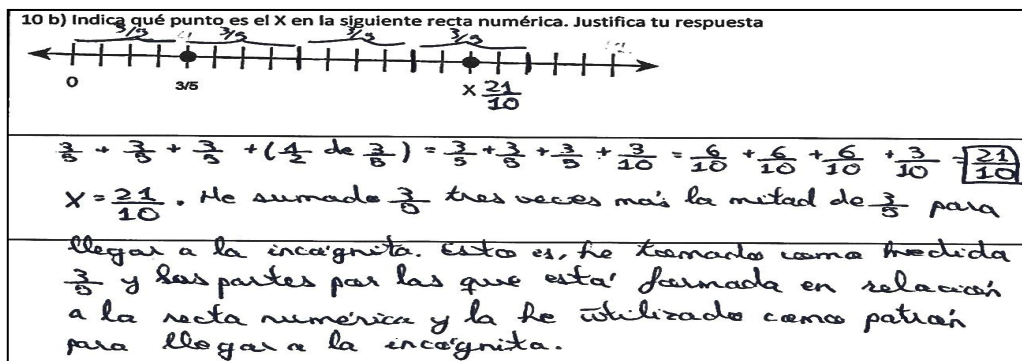 10 b) Indica qué punto es el X en la siguiente recta numérica. Justifica tu respuesta
3/5 3/5 3/5 3/5
0 3/5 X 21/10
3/5 + 3/5 + 3/5 + (1/2 de 3/5) = 3/5 + 3/5 + 3/5 + 3/10 = 6/10 + 6/10 + 6/10 + 3/10 = 21/10
X = 21/10. He sumado 3/5 tres veces más la mitad de 3/5 para
llegar a la incógnita. Esto es, he tomado como medida
3/5 y las partes por las que está formada en relación
a la recta numérica y la he utilizado como patrón
para llegar a la incógnita.